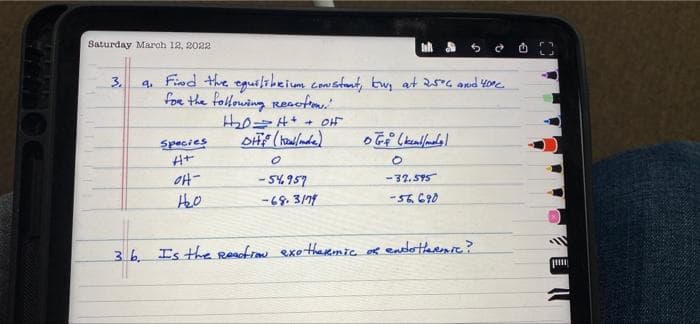 Saturday March 12, 2022
3. a. Find the equilibrium constant, kw, at 25°C and 40°C
for the following Reaction!
H2O ⇌ H+ + OH-
Species ΔH̄f° (kcal/mole) ΔḠf° (kcal/mole)
H+ 0 0
OH- -54.957 -37.595
H2O -68.3174 -56.690
3 b. Is the Reaction exothermic or endothermic?